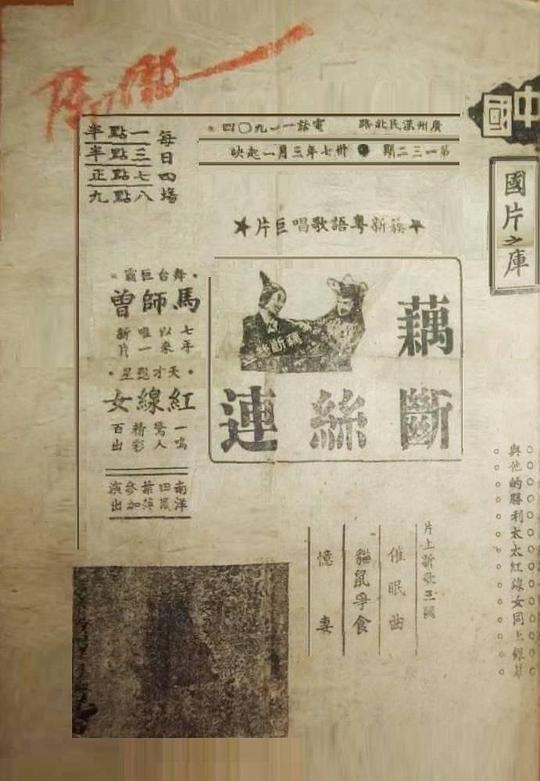 中國
國片之庫
與他的勝利太太紅線女同上銀幕
廣州漢民北路 電話一一九〇四
第一三二期 ● 卅七年三月一起映
每日四場
一點半
三點半
七點正
八點九
★簇新粵語歌唱巨片★
藕斷絲連
藕斷絲
舞台巨霸
馬師曾
七年以來唯一新片
天才艷星
紅線女
一鳴驚人精彩百出
南洋
葉萍參加演出
片上新歌三闋
催眠曲
貓鼠爭食
憶妻